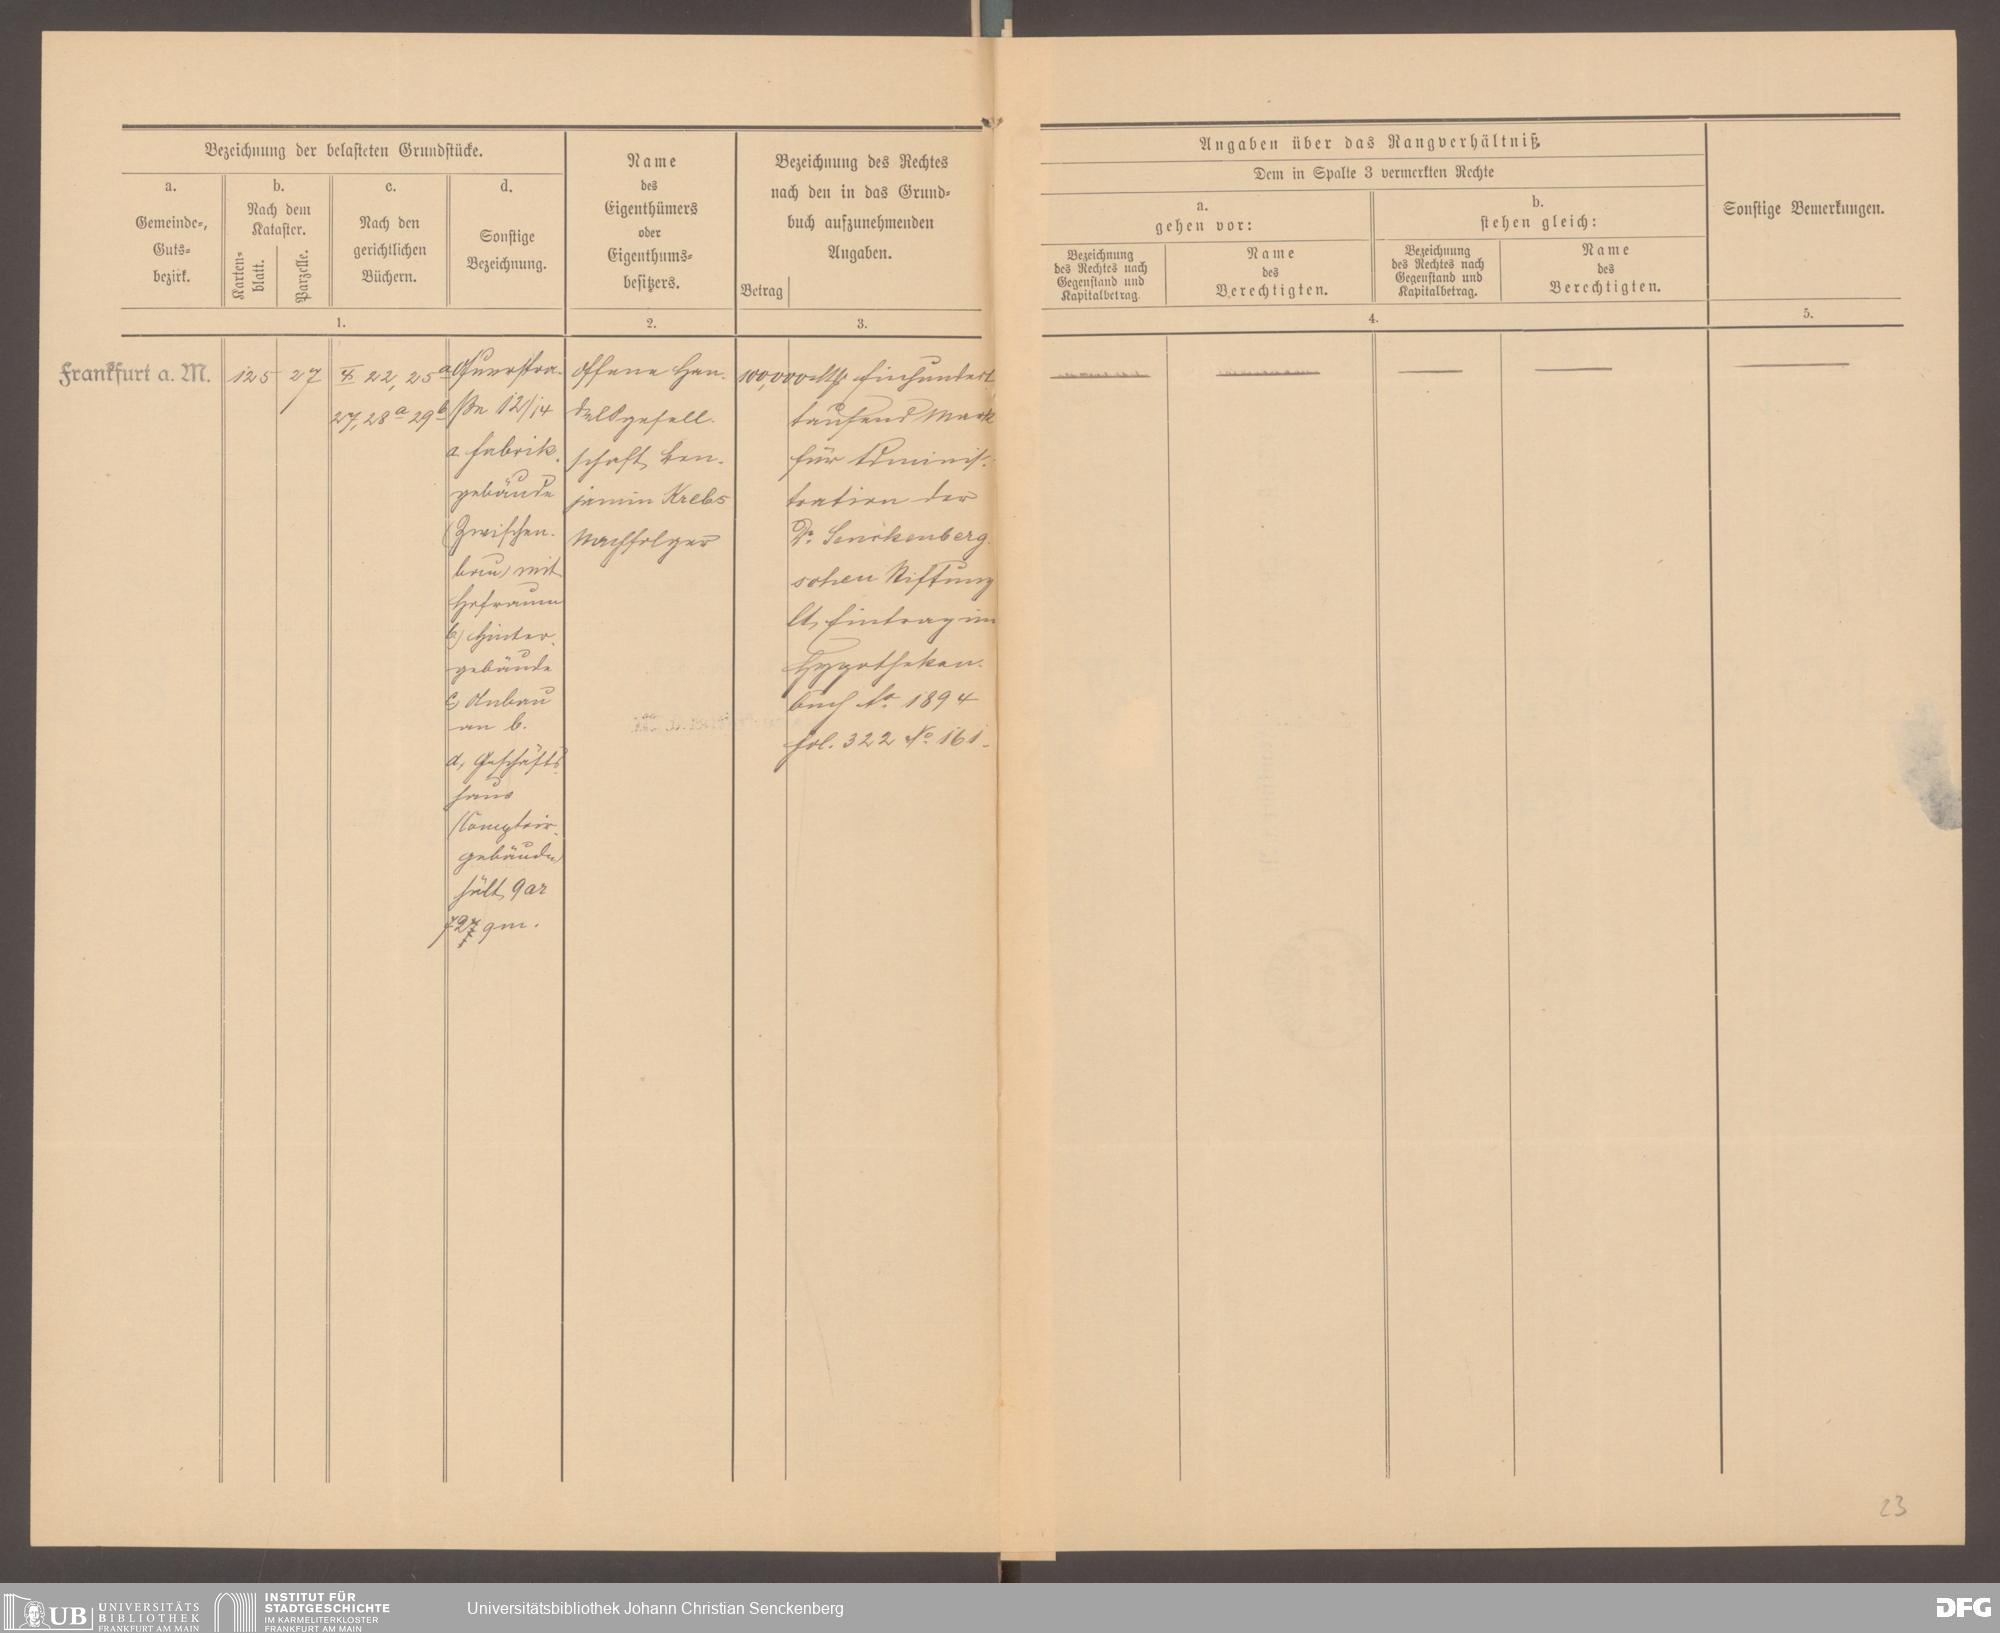 Bezeichnung der belasteten Grundstücke.
a.
Gemeinde-,
Guts-
bezirk.
b.
Nach dem
Kataster.
Karten-
blatt.
Parzelle.
c.
Nach den
gerichtlichen
Büchern.
d.
Sonstige
Bezeichnung.
1.
Name
des
Eigenthümers
oder
Eigenthums-
besitzers.
2.
Bezeichnung des Rechtes
nach den in das Grund-
buch aufzunehmenden
Angaben.
Betrag
3.
Angaben über das Rangverhältniß.
Dem in Spalte 3 vermerkten Rechte
a.
gehen vor:
Bezeichnung
des Rechtes nach
Gegenstand und
Kapitalbetrag.
Name
des
Berechtigten.
b.
stehen gleich:
Bezeichnung
des Rechtes nach
Gegenstand und
Kapitalbetrag.
Name
des
Berechtigten.
4.
Sonstige Bemerkungen.
5.
Frankfurt a. M.
125
27
22, 25a
27, 28a 29b
Querstra-
ße 12/14
a Fabrik-
gebäude
(Zwischen-
bau) mit
Hofraum
b) Hinter-
gebäude
c, Anbau
an b.
d, Geschäfts-
haus
(Comptoir-
gebäude)
hält 9 ar
qm.
Offene Han-
delsgesell-
schaft Ben-
jamin Krebs
Nachfolger
100,000 Mk
Einhundert
tausend Mark
für Adminis-
tration der
Dr. Senckenberg-
schen Stiftung
lt. Eintrag im
Hypotheken-
buch de 1894
fol. 322 No 161.
23
UB
UNIVERSITÄTS
BIBLIOTHEK
FRANKFURT AM MAIN
INSTITUT FÜR
STADTGESCHICHTE
IM KARMELITERKLOSTER
FRANKFURT AM MAIN
Universitätsbibliothek Johann Christian Senckenberg
DFG